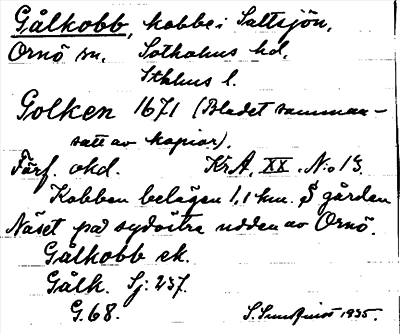 Gålkobb, kobbe i Saltsjön,
Ornö sn. Sotholms hd.
Sthlms l.
Golken 1671 (Bladet samman-
satt av kopior).
Förf. okd. KrA, XX. N:o 13.
Kobben belägen 1,1 km. S gården
Näset på sydöstra udden av Ornö.
Gålkobb ek.
Gålk. Sj: 237.
G. 68. S. Sundquist 1935.